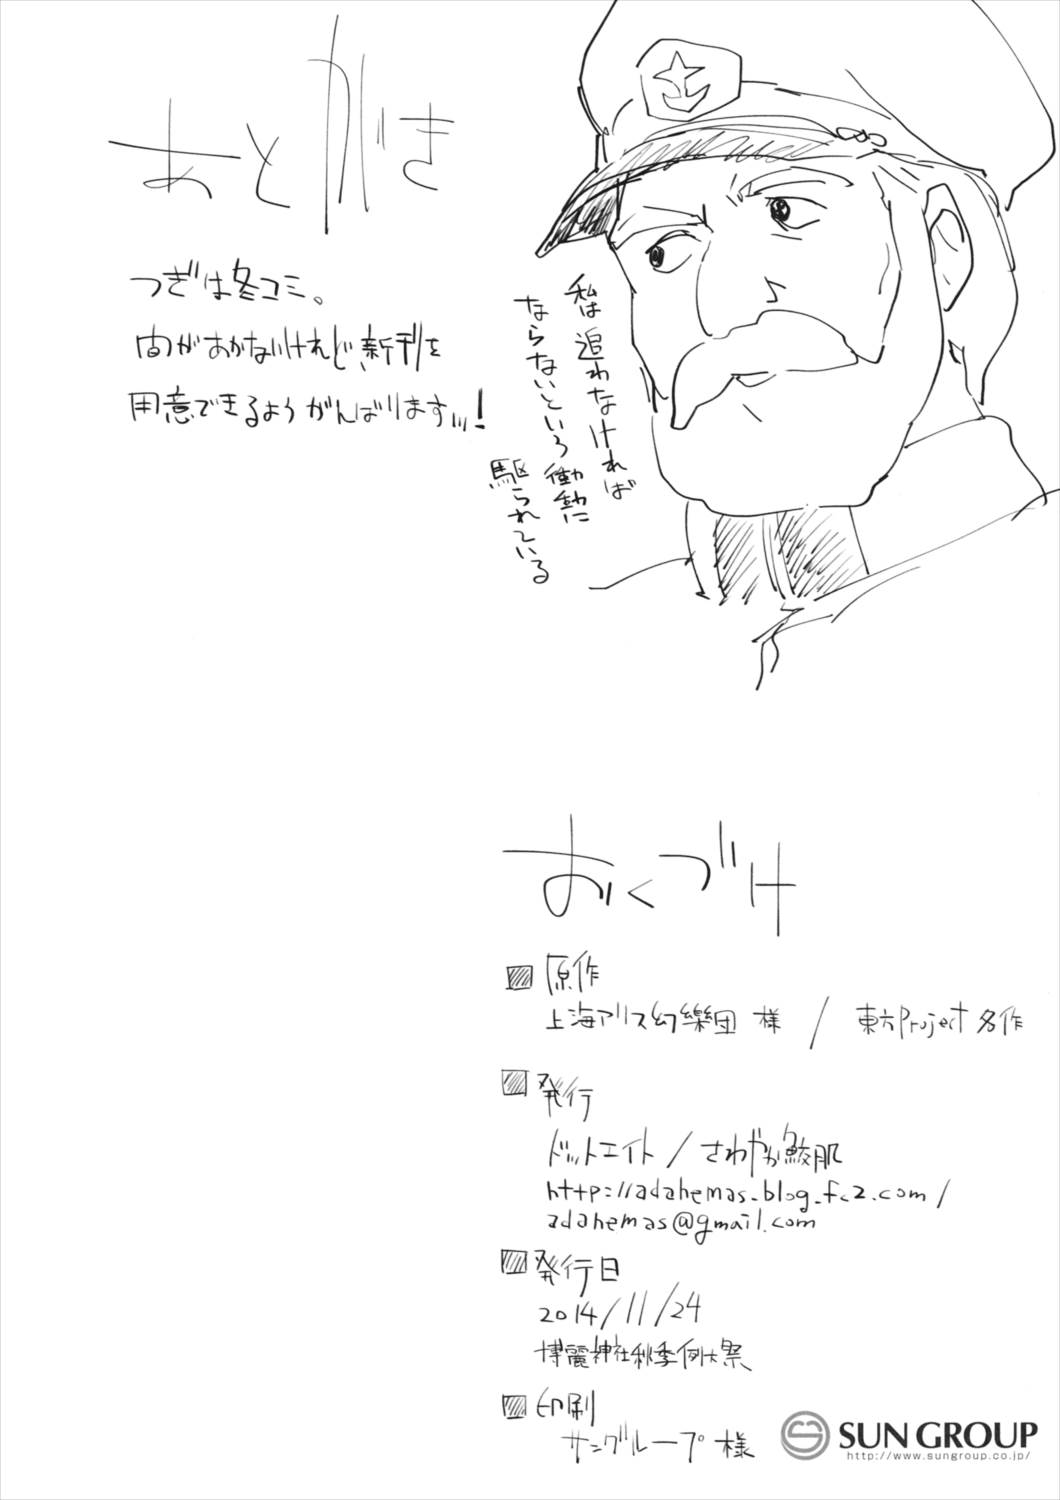 あとがき
つぎは冬コミ。
間があかないけれど、新刊を
用意できるようがんばります…!
私は追わなければ
ならないという衝動に
駆られている
おくづけ
原作
上海アリス幻樂団 様 / 東方Project各作
発行
ドットエイト / さわやか鮫肌
http://adahemas.blog.fc2.com/
adahemas@gmail.com
発行日
2014/11/24
博麗神社秋季例大祭
印刷
サングループ様
SUN GROUP
http://www.sungroup.co.jp/